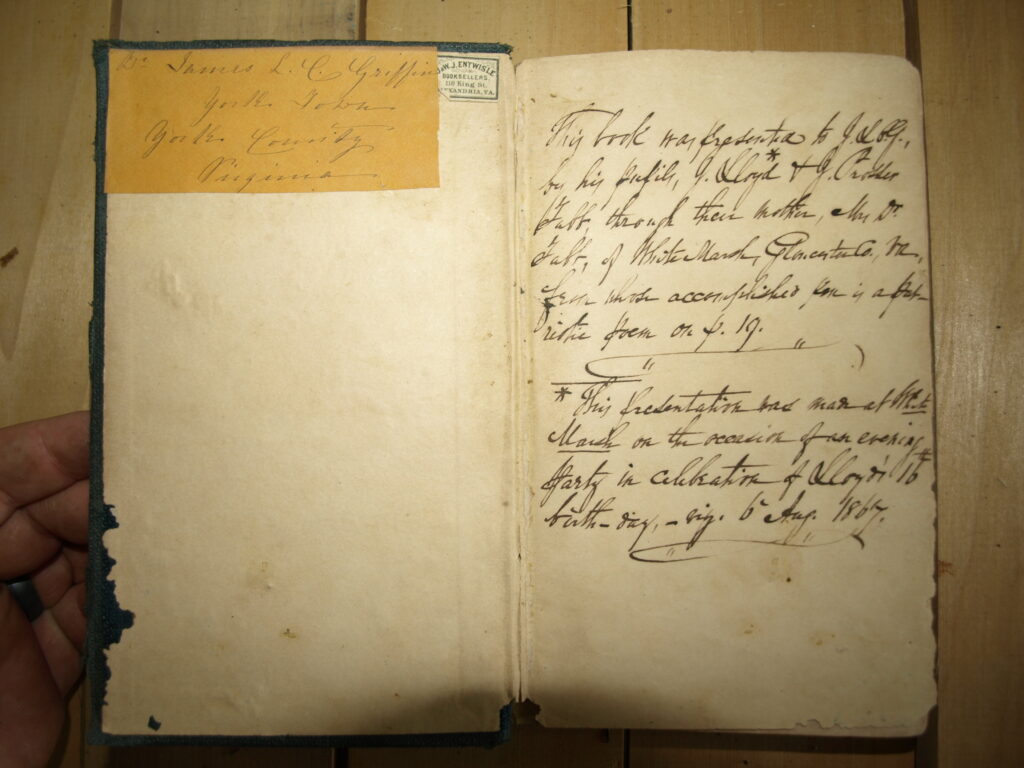 Dr. James L. C. Griffin
York Town
York County
Virginia
& W. J. ENTWISLE
BOOKSELLERS,
King St.
ALEXANDRIA, VA.
This book was presented to J. L. C. G.,
by his pupils, J. Lloyd* & J. Prosser
Tabb, through their mother, Mrs Dr.
Tabb, of White Marsh, Gloucester Co., Va.,
from whose accomplished pen is a pat-
riotic poem on p. 19.
* This presentation was made at White
Marsh on the occasion of an evening
party in celebration of Lloyd's 16th
birth-day, - viz. 6th Aug. 1867.